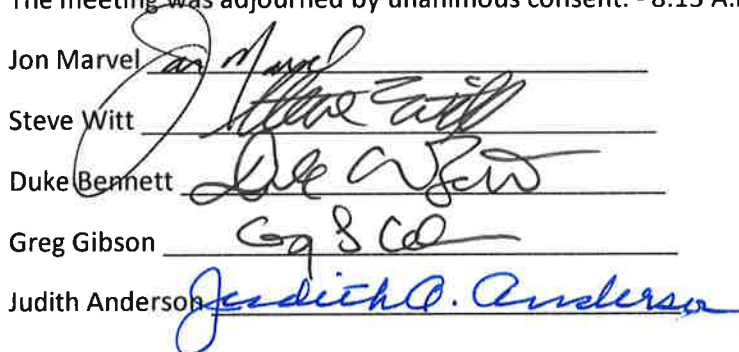 The meeting was adjourned by unanimous consent. - 8:15 A.
Jon Marvel Jon Marvel
Steve Witt Steve Witt
Duke Bennett Duke
Greg Gibson
Judith Anderson Judith A. Anderson